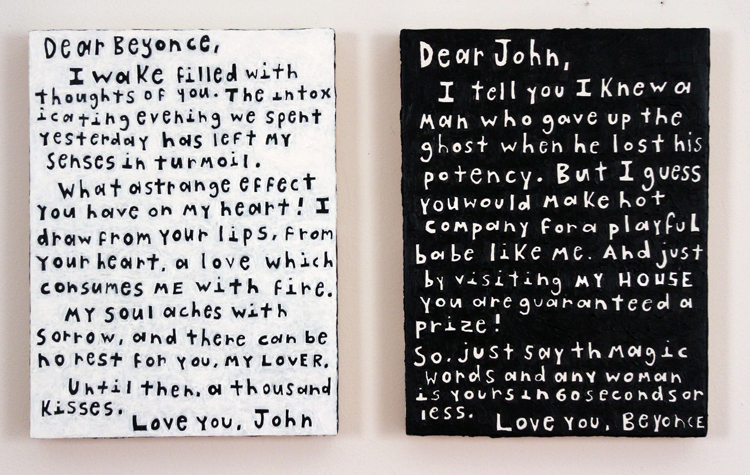 Dear Beyonce,
I wake filled with
thoughts of you. The intox
icating evening we spent
yesterday has left my
senses in turmoil.
What a strange effect
you have on my heart! I
draw from your lips, from
your heart, a love which
consumes me with fire.
My soul aches with
sorrow, and there can be
no rest for you, my lover.
Until then, a thousand
kisses.
Love you, John
Dear John,
I tell you I knew a
man who gave up the
ghost when he lost his
potency. But I guess
you would make hot
company for a playful
babe like me. And just
by visiting MY HOUSE
you are guaranteed a
prize!
So, just say th magic
words and any woman
is yours in 60 seconds or
less.
Love you, Beyonce